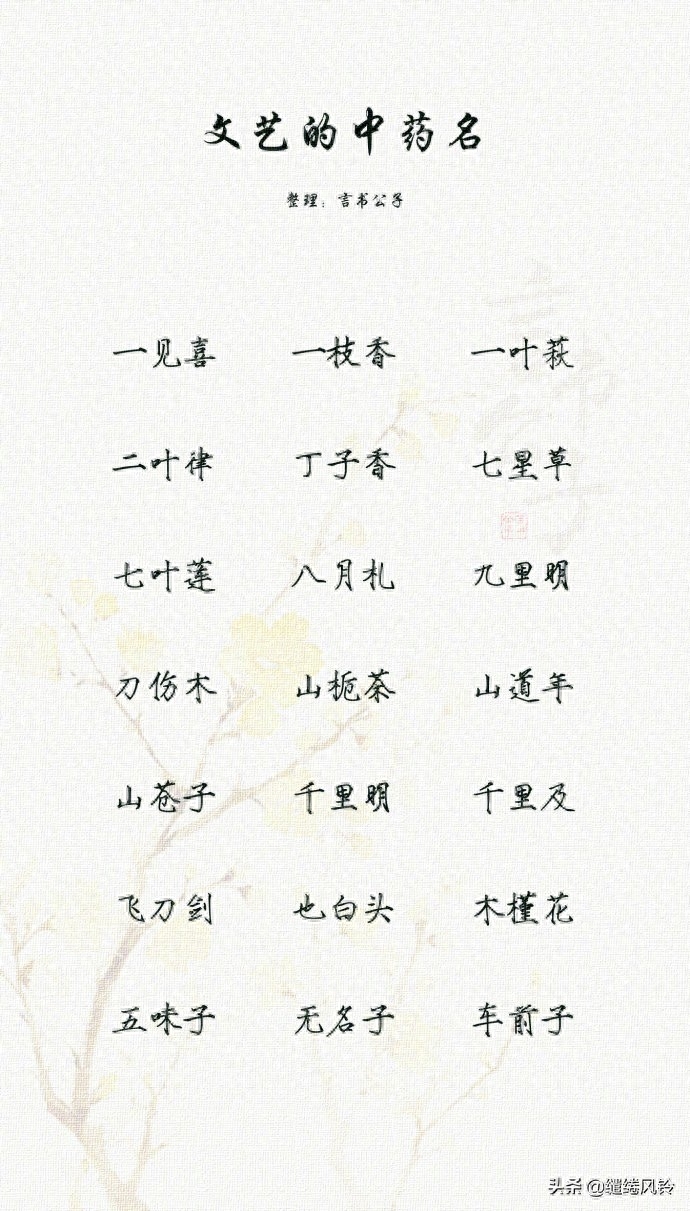 文艺的中药名
整理：言书公子
一见喜 一枝香 一叶萩
二叶律 丁子香 七星草
七叶莲 八月札 九里明
刀伤木 山栀茶 山道年
山苍子 千里明 千里及
飞刀剑 也白头 木槿花
五味子 无名子 车前子
头条 @缱绻风铃